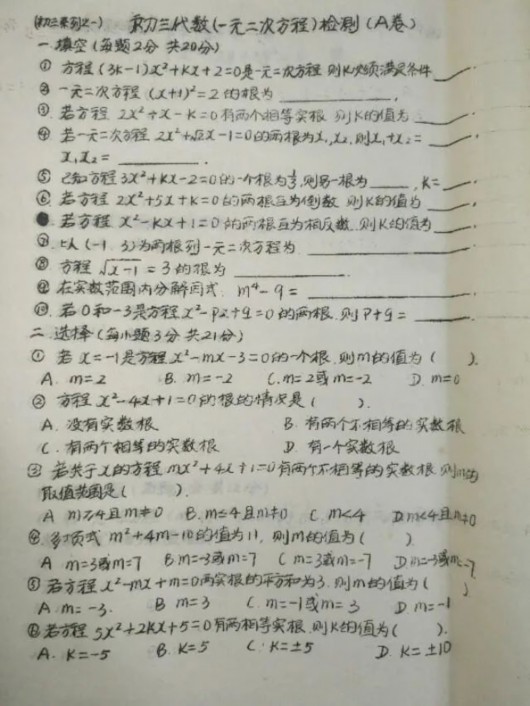 (初三系列之一) 初三代数(一元二次方程)检测(A卷)
一.填空(每题2分 共20分)
① 方程(3k-1)x²+kx+2=0是一元二次方程 则k必须满足条件____.
② 一元二次方程 (x+1)²=2的根为________.
③. 若方程 2x²+x-k=0有两个相等实根 则k的值为____.
④ 若一元二次方程 2x²+√2x-1=0的两根为x₁,x₂,则x₁+x₂=____.
x₁x₂=________.
⑤ 已知方程3x²+kx-2=0的一个根为⅓,则另一根为____,k=____.
⑥ 若方程 2x²+5x+k=0的两根互为倒数 则k的值为____.
若方程 x²-kx+1=0的两根互为相反数.则k的值为____.
⑦. 以(-1 3)为两根列一元二次方程为________.
⑧ 方程 √x-1=3的根为________.
⑨ 在实数范围内分解因式. m⁴-9=________.
⑩. 若0和-3是方程x²-px+q=0的两根.则p+q=________.
二.选择(每小题3分 共21分)
① 若 x=-1是方程x²-mx-3=0的一个根.则m的值为( ).
A. m=2 B. m=-2 C. m=2或m=-2 D. m=0
② 方程 x²-4x+1=0的根的情况是( ).
A. 没有实数根 B. 有两个不相等的实数根
C. 有两个相等的实数根 D. 有一个实数根
③ 若关于x的方程mx²+4x+1=0有两个不相等的实数根 则m的
取值范围是( ).
A m≥4且m≠0 B. m≤4且m≠0 C. m<4 D. m<4且m≠0
④. 多项式 m²+4m-10的值为11, 则m的值为( ).
A m=3或m=7 B m=-3或m=7 C m=3或m=-7 D m=-3或m=-7
⑤ 若方程x²-mx+m=0两实根的平方和为3.则m的值为( )
A. m=-3. B m=3 C. m=-1或m=3 D. m=-1
⑥ 若方程 5x²+2kx+5=0有两相等实根.则k的值为( ).
A. k=-5 B. k=5 C. k=±5 D. k=±10